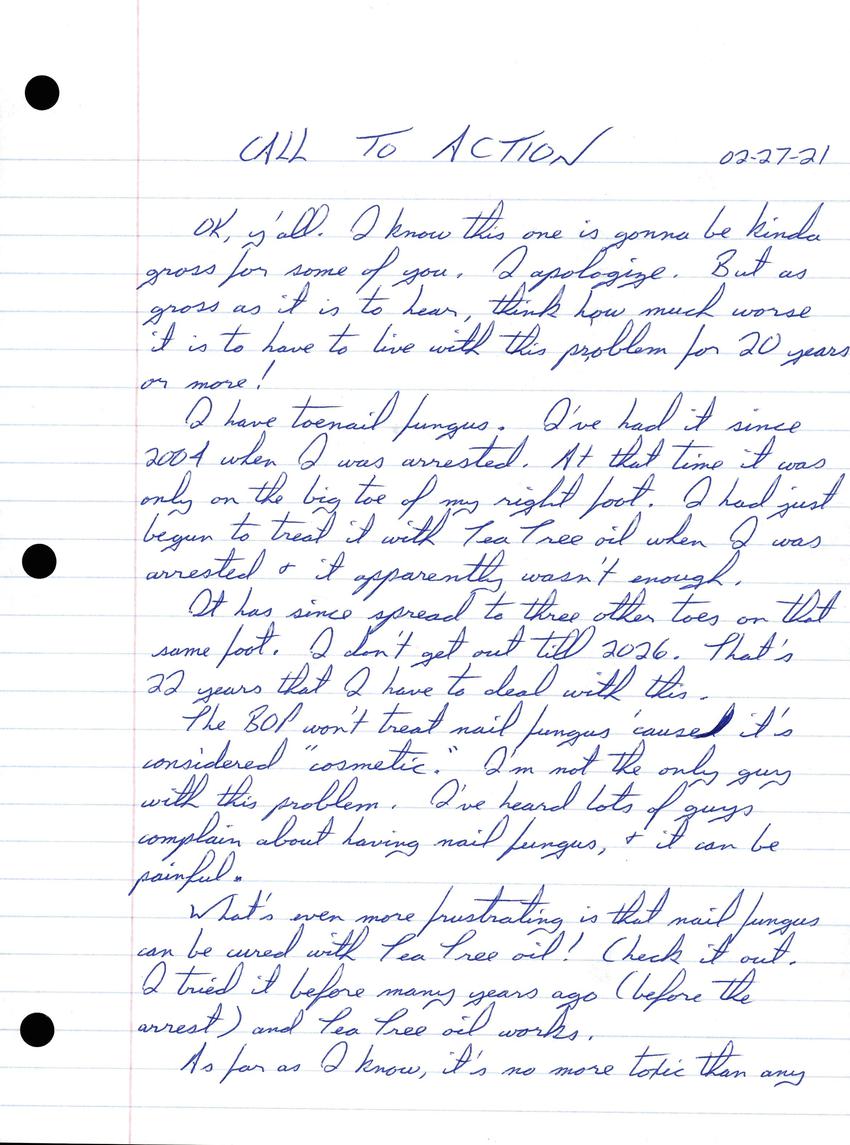 CALL TO ACTION 02-27-21
OK, y'all. I know this one is gonna be kinda
gross for some of you. I apologize. But as
gross as it is to hear, think how much worse
it is to have to live with this problem for 20 years
or more!
I have toenail fungus. I've had it since
2004 when I was arrested. At that time it was
only on the big toe of my right foot. I had just
begun to treat it with Tea Tree oil when I was
arrested & it apparently wasn't enough.
It has since spread to three other toes on that
same foot. I don't get out till 2026. That's
22 years that I have to deal with this.
The BOP won't treat nail fungus 'cause it's
considered "cosmetic." I'm not the only guy
with this problem. I've heard lots of guys
complain about having nail fungus, & it can be
painful.
What's even more frustrating is that nail fungus
can be cured with Tea Tree oil! Check it out.
I tried it before many years ago (before the
arrest) and Tea Tree oil works.
As far as I know, it's no more toxic than any